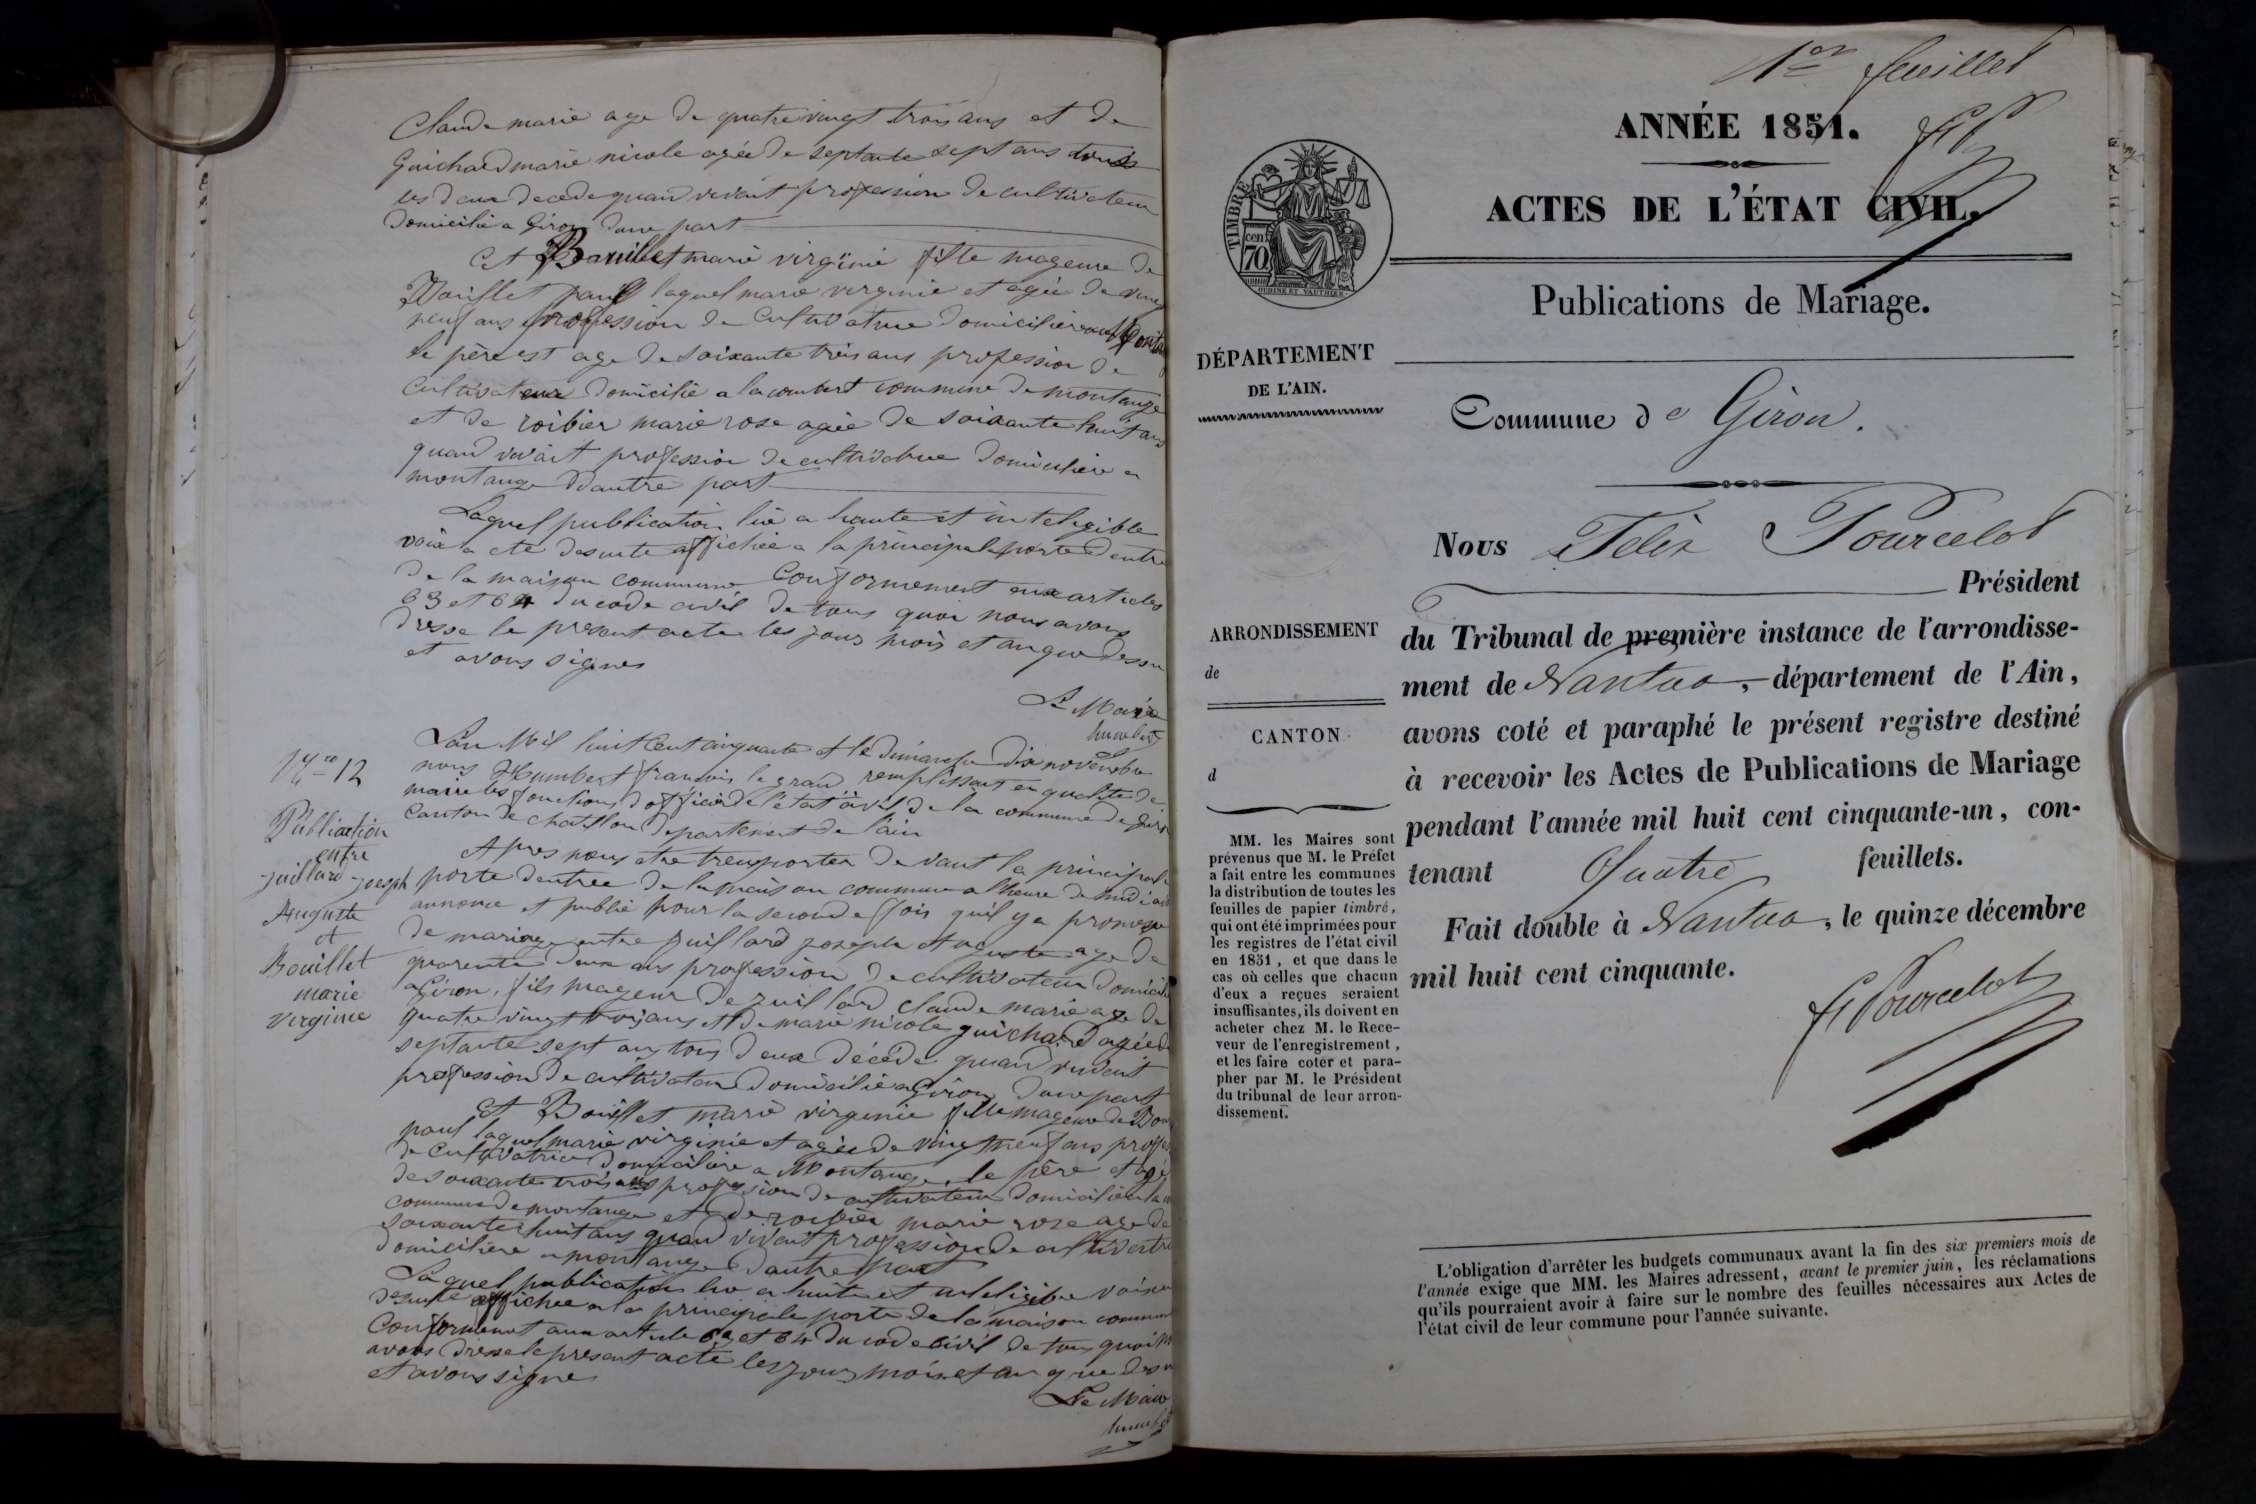 Claude marie age de quatre vingt trois ans et de
Guichard marie nicole agée de septante sept ans tous
les deux decede quand vivait profession de cultivateur
domicilié a Giron dune part
Et Bouillet marie virginie fille mageure de
Bouillet paul laquel marie virginie et agée de vingt
neuf ans profession de cultivatrice domicilière a Montange
le père est age de soixante trois ans profession de
cultivateur domicilié a la combert commune de montange
et de roibier marie rose agée de soixante huit ans
quand vivait profession de cultivatrice domicilière a
montange d'autre part
Laquel publication lue a haute et inteligible
voix a eté desuite affichée a la principale porte dentre
de la maison commune Conformement aux articles
63 et 64 du code civil de tous quoi nous avons
dresse le present acte les jour mois et an que dessu
et avons signes
Le Maire
humbert
N.ro 12
Publication
entre
juillard joseph
Auguste
et
Bouillet
marie
virginie
L'an Mil huit Cent cinquante et le dimanche dix novembre
nous Humbert françois le grand remplissant en qualité de
maire les fonctions d'officier de l'état civil de la commune de Giron
canton de chatillon departement de l'ain
Apres nous etre transporter devant la principale
porte dentree de la maison commune a l'heure de midi avons
annonce et publié pour la seconde fois qu'il y a promesse
de mariage entre juillard joseph auguste age de
quarente deux ans profession de cultivateur domicilié
a Giron, fils mageur de juillard claude marie age de
quatre vingt trois ans et de marie nicole guichard agée de
septante sept ans tous deux décéde quand vivait
profession de cultivateur domicilié a Giron dune part
Et Bouillet marie virginie fille mageure de Bou
paul laquel marie virginie et agée de vingt neuf ans profes
de cultivatrice domicilière a Montange, le père et agé
de soixante trois ans profession de cultivateur domicilié a la
commune de montange et de roibier marie rose age de
soixante huit ans quand vivait profession de cultivatri
domicilière a montange d'autre part
Laquel publication lue a haute et inteligible voix
desuite affichée a la principale porte de la maison commune
Conformement aux article 63 et 64 du code civil de tous quoi
avons dresse le present acte les jour mois et an que dessu
et avons signe
Le Maire
humbert
1er feuillet
ANNÉE 1851.
ACTES DE L'ÉTAT CIVIL.
TIMBRE
cen
70
OUDINÉ ET VAUTHIER.
Publications de Mariage.
DÉPARTEMENT
DE L'AIN.
Commune de Giron.
Nous Félix Pourcelot
Président
ARRONDISSEMENT
de
CANTON
d
du Tribunal de première instance de l'arrondisse-
ment de Nantua, département de l'Ain,
avons coté et paraphé le présent registre destiné
à recevoir les Actes de Publications de Mariage
pendant l'année mil huit cent cinquante-un, con-
tenant Quatre feuillets.
Fait double à Nantua, le quinze décembre
mil huit cent cinquante.
F Pourcelot
MM. les Maires sont
prévenus que M. le Préfet
a fait entre les communes
la distribution de toutes les
feuilles de papier timbré,
qui ont été imprimées pour
les registres de l'état civil
en 1851, et que dans le
cas où celles que chacun
d'eux a reçues seraient
insuffisantes, ils doivent en
acheter chez M. le Rece-
veur de l'enregistrement,
et les faire coter et para-
pher par M. le Président
du tribunal de leur arron-
dissement.
L'obligation d'arrêter les budgets communaux avant la fin des six premiers mois de
l'année exige que MM. les Maires adressent, avant le premier juin, les réclamations
qu'ils pourraient avoir à faire sur le nombre des feuilles nécessaires aux Actes de
l'état civil de leur commune pour l'année suivante.